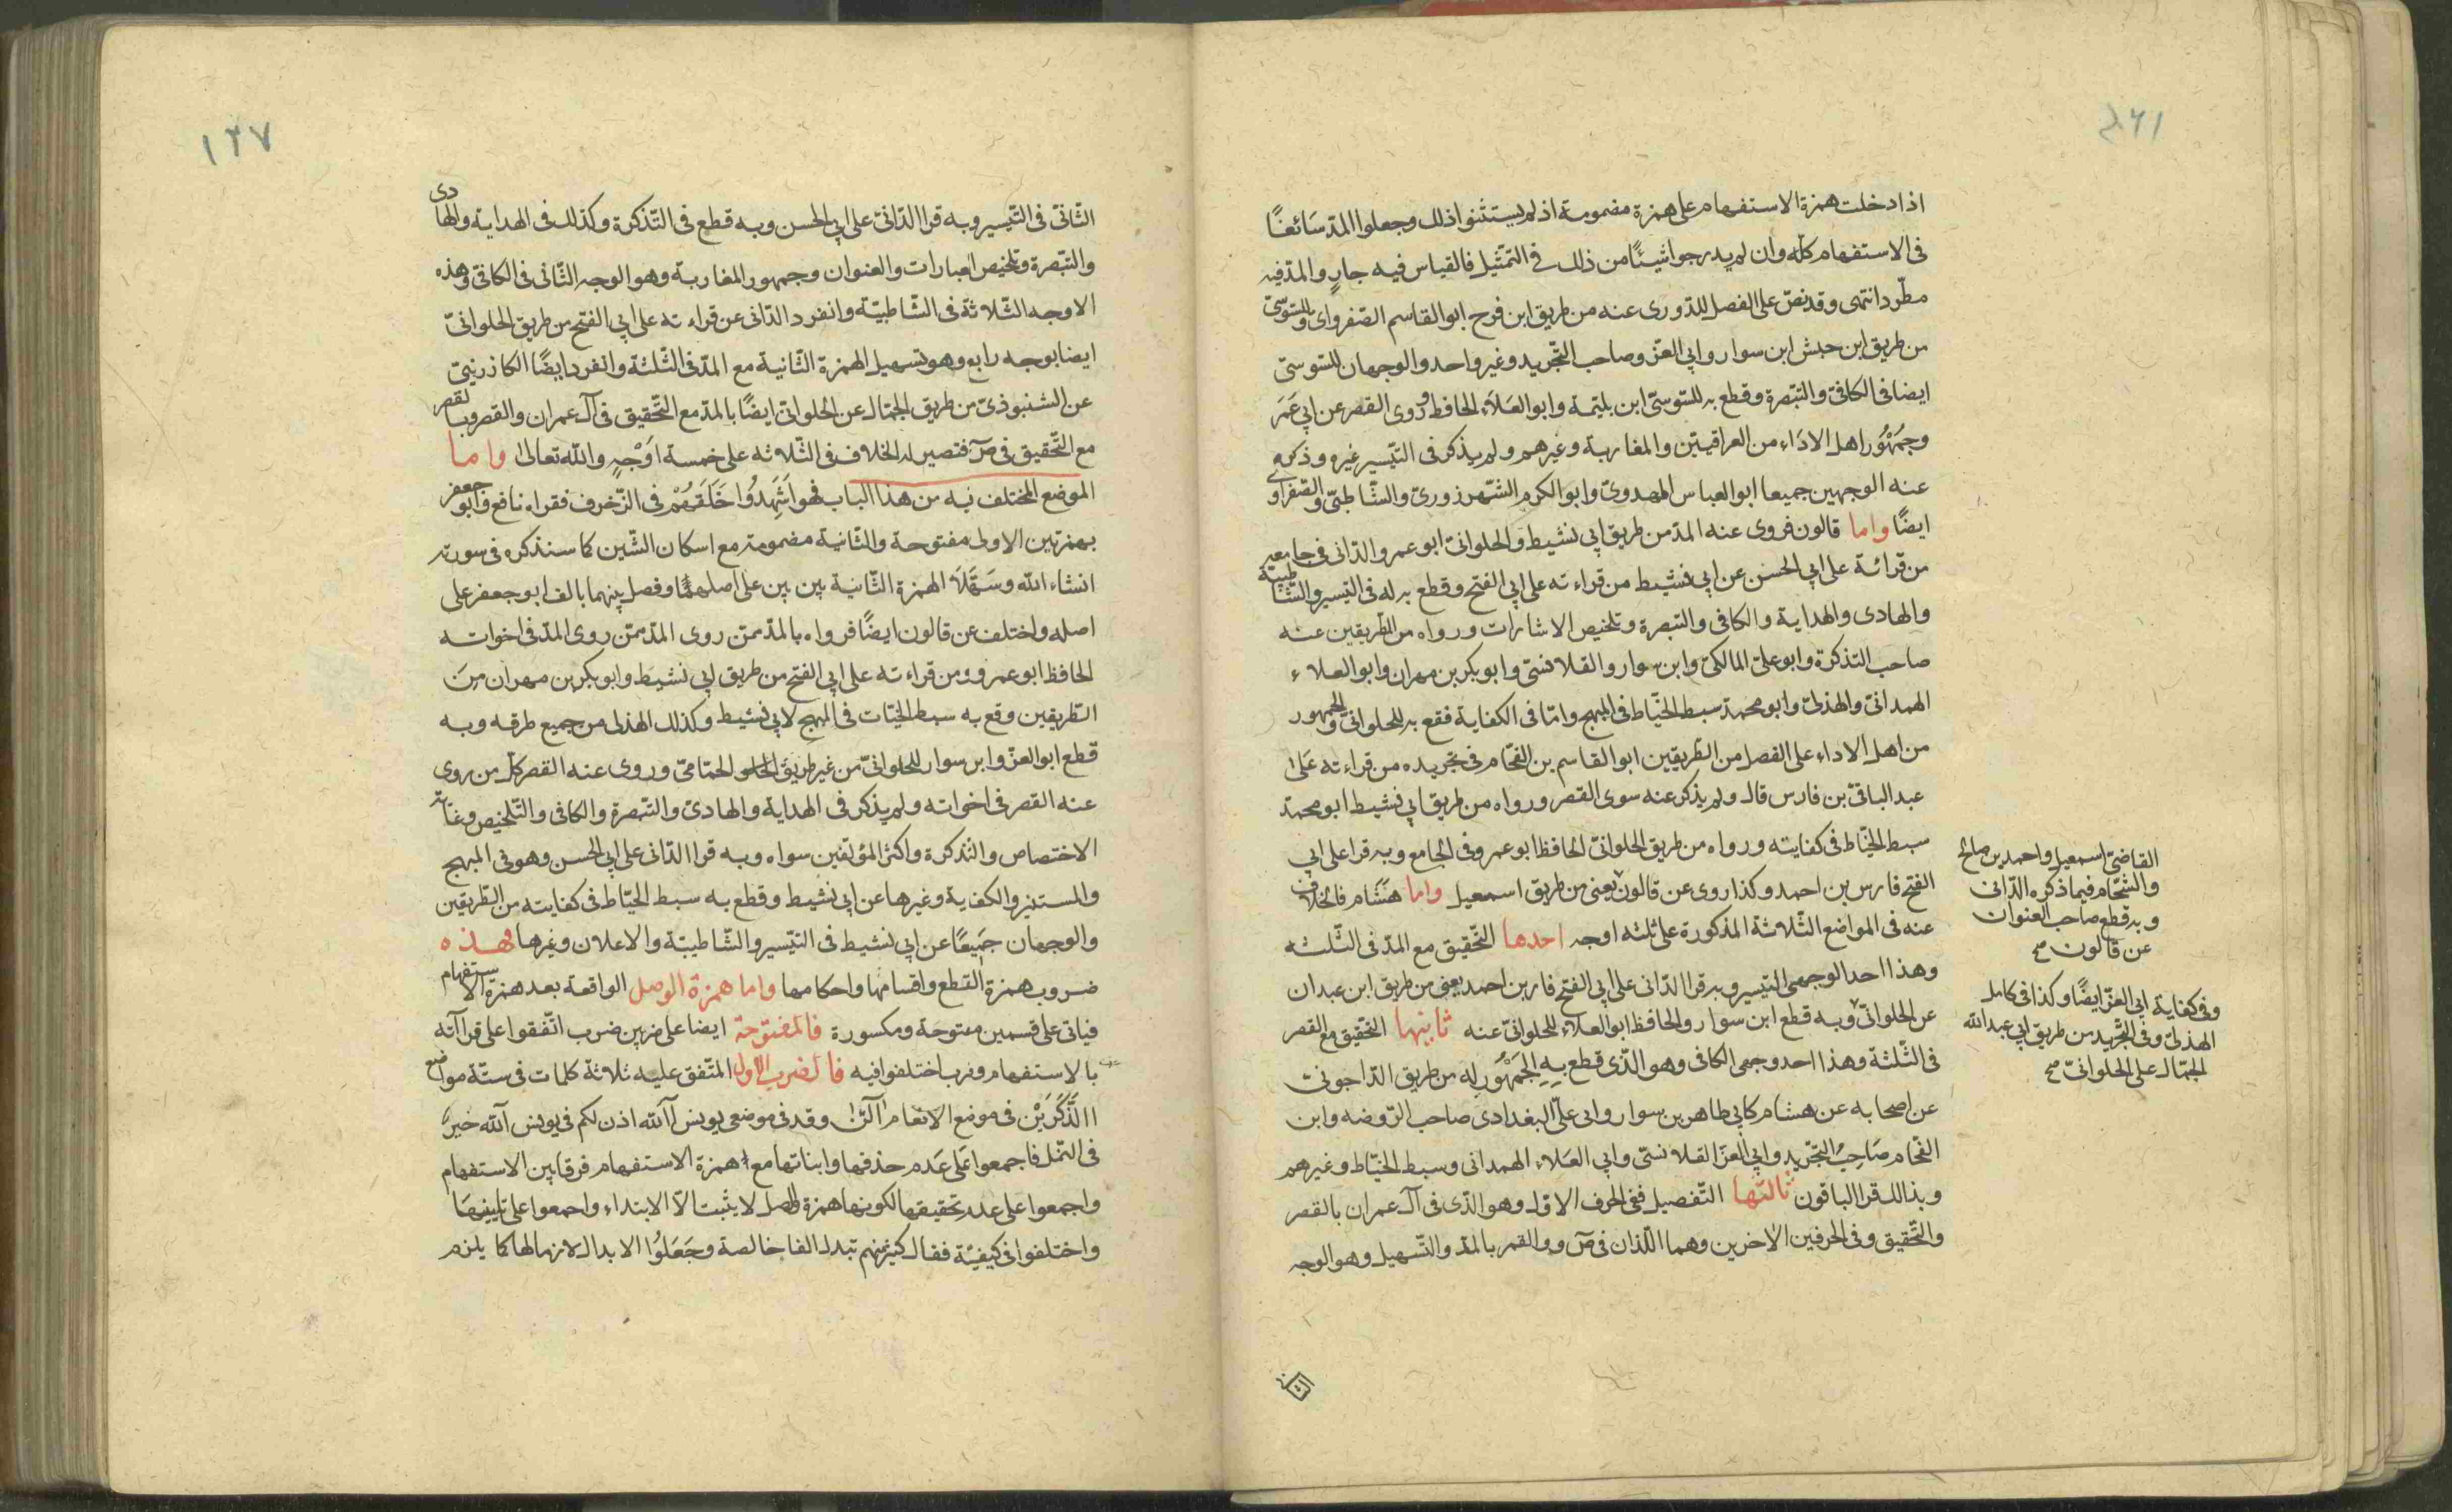 اذا دخلت همزة الاستفهام على همزة مضمومة اذ لم يستثنوا ذلك وجعلوا المدّ سَائغًا
فى الاستفهام كلّه وان لم يدرجوا شيئًا من ذلك فى التمثيل فالقياس فيه جارٍ والمدّ فيه
مطّرد انتهى وقد نصّ على الفصل للدّورى عنه من طريق ابن فرح ابو القاسم الصّفراوى وللسّوسىّ
من طريق ابن حبش ابن سوار وابى العزّ وصاحب التّجريد وغير واحد والوجهان للسّوسىّ
ايضا فى الكافى والتبصرة وقطع به للسّوسىّ ابن بليمة وابو العَلاَء الحافظ وروى القصر عن ابى عَمَر
وجمْهُور اهل الادَاء من العراقيّين والمغاربة وغيرهم ولم يذكر فى التّيسير غيره وذكر
عنه الوجهين جميعا ابو العباس المهدوىّ وابو الكرم الشّهرزورىّ والشّاطبىّ والصّفراوى
ايضًا واما قالون فروى عنه المدّ من طريق ابى نشيط والحلوانىّ ابو عمرو الدّانى فى جامعه
من قرائة على ابى الحسن عن ابى نشيط من قراءته على ابى الفتح وقطع به له فى التيسير والشّاطبيّة
والهادى والهداية والكافى والتبصرة وتلخيص الاشارات ورواه من الطّريقين عنه
صاحب التذكرة وابو علىّ المالكىّ وابن سوار والقلانسىّ وابو بكر بن مهران وابو العلاء
الهمدانىّ والهذلىّ وابو محمدّ سبط الخيّاط فى المبهج وامّا فى الكفاية فقع به للحلوانىّ والجمهور
من اهل الاداء على الفصل من الطّريقين ابو القاسم بن الفحّام فى تجريده من قراءته عَلَى
عبد الباقىّ بن فارس قال ولم يذكر عنه سوى القصر ورواه من طريق ابى نشيط ابو محمدّ
سبط الخيّاط فى كفايته ورواه من طريق الحلوانىّ الحافظ ابو عمرو فى الجامع وبه قرا على ابى
الفتح فارس بن احمد وكذا روى عن قالون يعنى من طريق اسمعيل واما هشَام فالخلاف
عنه فى المواضع الثّلاثة المذكورة على ثلثه اوجه احدها التّحقيق مع المدّ فى الثّلثه
وهذا احد الوجهى التيسير وبه قرا الدّانى على ابى الفتح فارس بن احمد يعنى من طريق ابن عبدان
عن الحلوانىّ وبه قطع ابن سوار والحافظ ابو العلاء للحلوانىّ عنه ثانيها التّحقيق مع القصر
فى الثّلثة وهذا احد وجهى الكافى وهو الذّى قطع بهِ الجَمْهُور له من طريق الدّاجونىّ
عن اصحابه عن هشام كابى طاهر بن سوار وابى علىّ البغدادى صاحب الرّوضه وابن
الفحّام صَاحِب التّجريد وابى العزّ القلانسىّ وابى العَلاء الهمدانى وسبط الخيّاط وغيرهم
وبذالك قرا الباقون ثالثها التّفصيل ففى الحرف الاوّل وهو الذّى فى آل عمران بالقصر
والتّحقيق وفى الحرفين الاخرين وهما اللّذان فى صٓ ووالقمر بالمدّ والتّسهيل وهو الوجه
القاضى اسمعيل واحمد بن صالح
والشّحّام فيما ذكره الدّانى
وبه قطع صاحب العنوان
عن قالون صح
وفى كفاية ابى العزّ ايضًا وكذا فى كامل
الهذلىّ وفى التّجريد من طريق ابى عبد الله
الجمّال على الحلوانىّ صح
الثانى
١٢٧
الثّانىّ فى التّيسير وبه قرا الدّانىّ على ابى الحسن وبه قطع فى التّذكرة وكذلك فى الهداية والهادى
والتبّصرة وتلخيص العبارات والعنوان وجمهور المغاربة وهو الوجه الثّانى فى الكافىّ وهذه
الاوجه الثّلاثة فى الشّاطبيّة وانفرد الدّانى عن قراءته على ابى الفتح من طريق الحلوانىّ
ايضا بوجه رابع وهو تسهيل الهمزة الثّانية مع المدّ فى الثّلثة وانفرد ايضًا الكازرينىّ
عن الشنبوذىّ من طريق الجمّال عن الحلوانىّ ايضًا بالمدّ مع التّحقيق فى آل عمران والقصر وبالقصر
مع التّحقيق فى صٓ فتصير له الخلاف فى الثّلاثه على خمسة اَوْجهٍ والله تعالى واما
الموضع المختلف فيه من هذا الباب فهو اَشَهِدُوا خَلَقَهُمْ فى الزّخرف فقراه نافع وابو جعفر
بهمزتين الاولى مفتوحة والثّانية مضمومة مع اسكان الشّين كما سنذكره فى سورته
انشاء الله وسَهّلاَ الهمزة الثّانية بين بين على اصلهمَا وفصل بينهما بالف ابو جعفر على
اصله واختلف عن قالون ايضًا فرواه بالمدّ ممّن روى المدّ ممّن روى المدّ فى اخواته
الحافظ ابو عمرو ومن قراءته على ابى الفتح من طريق ابى نشيط وابو بكر بن مهران مِنَ
الطّريقين وقع به سبط الخيّاط فى المبهج لابى نشيط وكذلك الهذلى من جميع طرقه وبه
قطع ابو العزّ وابن سوار للحلوانىّ من غير طريق الحمّامىّ وروى عنه القصر كلّ من روى
عنه القصر فى اخواته ولم يذكر فى الهداية والهادىّ والتّبصرة والكافى والتّلخيص وغاية
الاختصاص والتذكرة واكثر المؤلّفين سواه وبه قرا الدّانى على ابى الحسن وهو فى المبهج
والمستنير والكفاية وغيرها عن ابى نشيط وقطع به سبط الخيّاط فى كفايته من الطّريقين
والوجهان جمَيعًا عن ابى نشيط فى التيّسير والشّاطبيّة والاعلان وغيرها فهذه
ضروب همزة القطع واقسامها واحكامها واما همزة الوصل الواقعة بعد همزة الاستفهام
فياتى على قسمين مفتوحة ومكسورة فالمفتوحة ايضا على ضربين ضرب اتّفقوا على قراآته
بالاستفهام وضرب اختلفوا فيه فالضرب الاول المتّفق عليه ثلاثة كلمات فى ستّة مواضع
االذَّكَرَيْن فى موضع الانعام آلئن وقد فى موضعى يونس آلله اذن لكم فى يونس آلله خيرٌ
فى النّمل فاجمعوا عَلَى عَدم حذفها واثباتها مع همزة الاستفهام فرقا بين الاستفهام
واجمعوا على عدم تحقيقها لكونها همزة وصل لا يثبت الاّ الابتداء واجمعوا على تليينهَا
واختلفوا فى كيفيّة فقال كثير منهم تبدل الفا خالصة وجَعَلُوا الابدال لازما لها كما يلزم